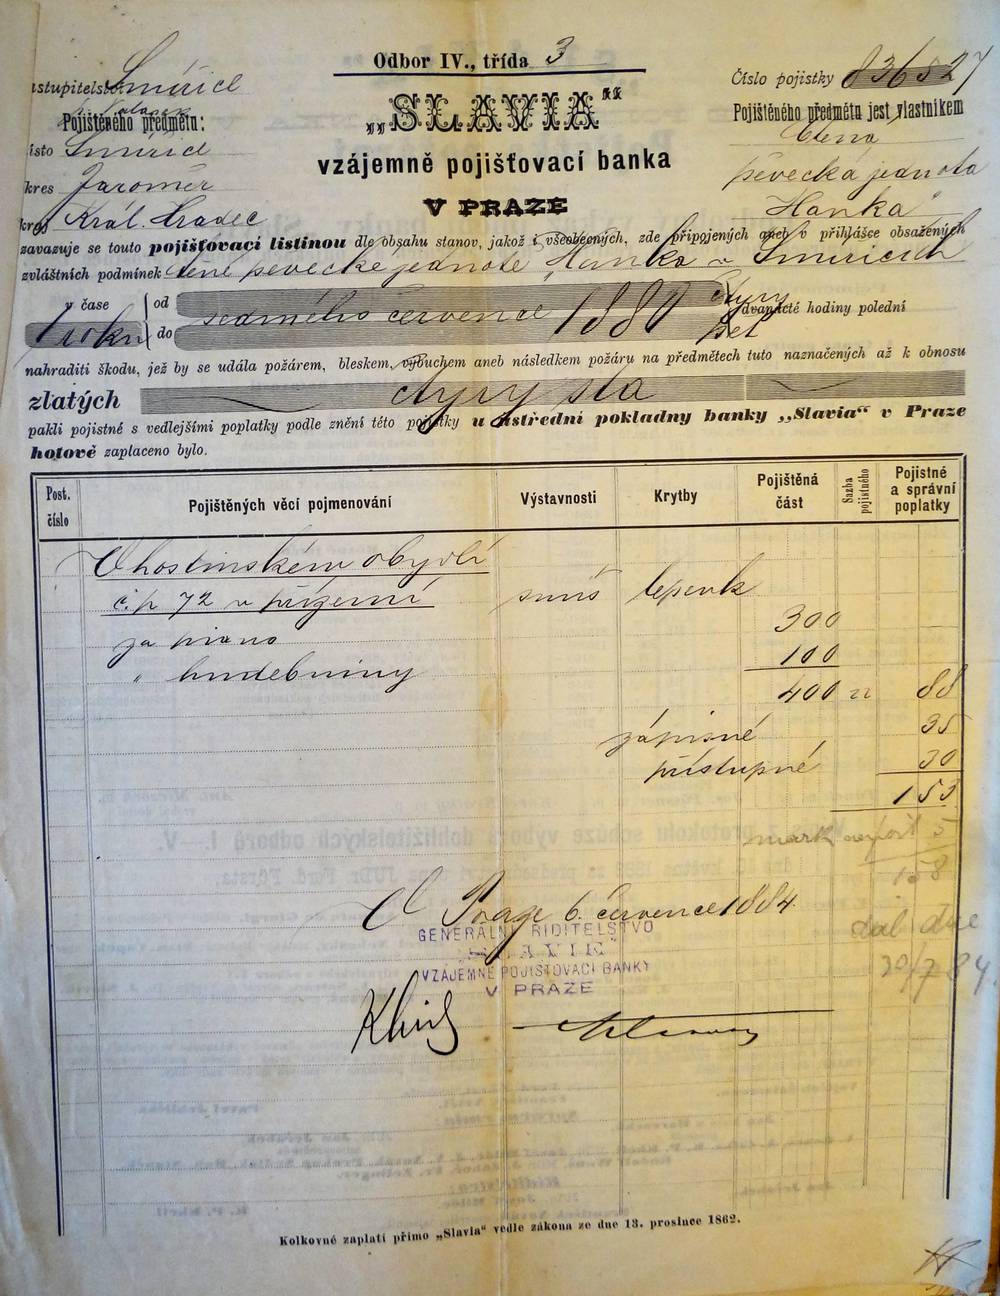 Odbor IV., třída 3
„SLAVIA“
vzájemně pojišťovací banka
V PRAZE
astupitelstvo Smiřice
Pojištěného předmětu:
ísto Smiřice
kres Jaroměř
kraj Král. Hradec
Číslo pojistky 836527
Pojištěného předmětu jest vlastníkem
Ctěná
pěvecká jednota
„Hanka“
zavazuje se touto pojišťovací listinou dle obsahu stanov, jakož i všeobecných, zde připojených aneb v přihlášce obsažených
zvláštních podmínek ctěné pěvecké jednotě „Hanka“ v Smiřicích
v čase od čtyry
1 roku do sedmého července 188 pět dvanácté hodiny polední
nahraditi škodu, jež by se udála požárem, bleskem, výbuchem aneb následkem požáru na předmětech tuto naznačených až k obnosu
zlatých čtyry sta
pakli pojistné s vedlejšími poplatky podle znění této pojistky u ústřední pokladny banky „Slavia“ v Praze
hotově zaplaceno bylo.
Post. číslo
Pojištěných věcí pojmenování
Výstavnosti
Krytby
Pojištěná část
Sazba pojistného
Pojistné a správní poplatky
V hostinském obydlí
č. p 72 v přízemí smíš lepenk
za piano 300
„ hudebniny 100
400 zl 88
zápisné 35
přístupné 30
153
mark 5
158
V Praze 6. července 1884.
GENERÁLNÍ ŘIDITELSTVO
„SLAVIE“
VZÁJEMNĚ POJIŠŤOVACÍ BANKY
V PRAZE
dal dne
30/7 84.
Kolkovné zaplatí přímo „Slavia“ vedle zákona ze dne 13. prosince 1862.